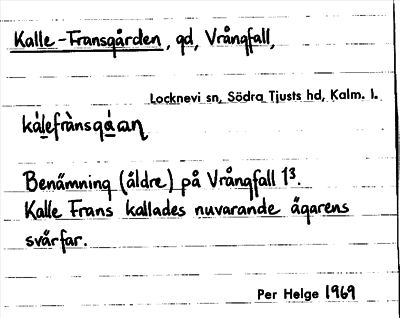 Kalle-Fransgården, gd, Vrångfall,
Locknevi sn, Södra Tjusts hd, Kalm. l.
kálefrànsgáɑn̥
Benämning (äldre) på Vrångfall 1³.
Kalle Frans kallades nuvarande ägarens
svärfar.
Per Helge 1969